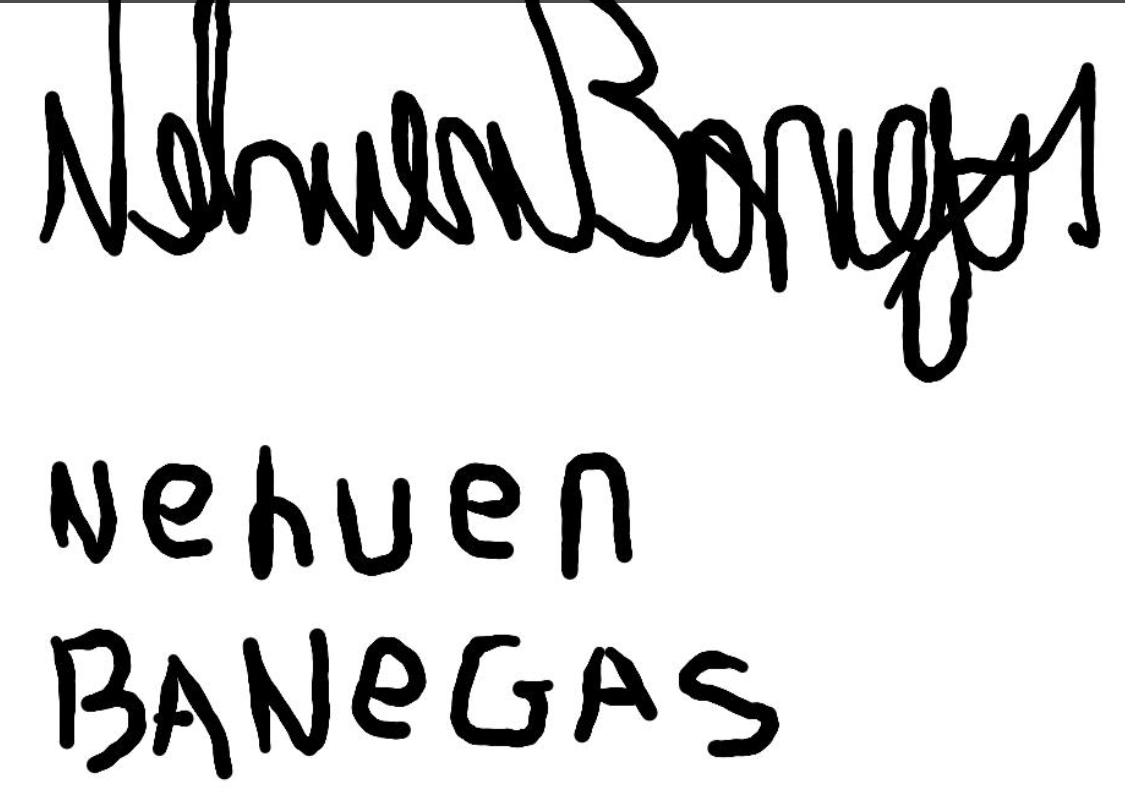 Nehuen Banegas
Nehuen
BANeGAS